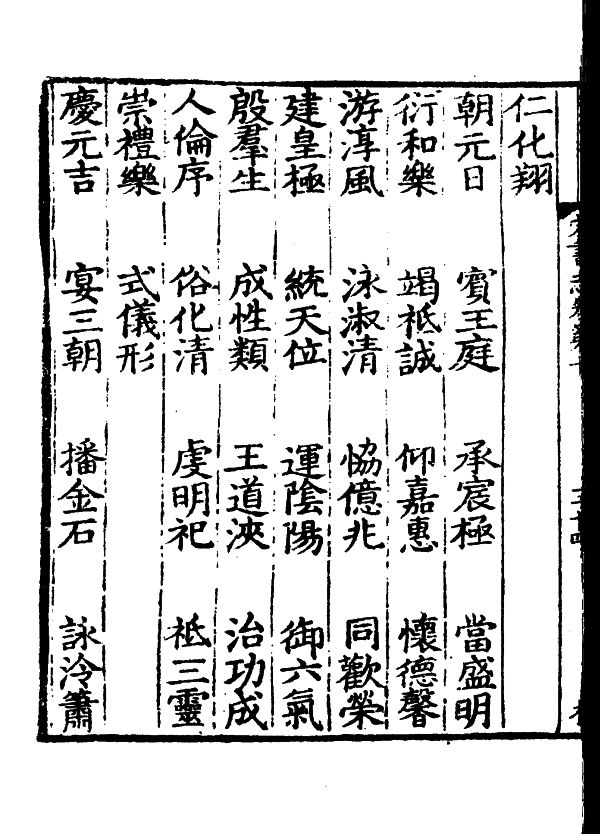 仁化翔
朝元日 賓王庭 承宸極 當盛明
衍和樂 竭祗誠 仰嘉惠 懷德馨
游淳風 泳淑清 協億兆 同歡榮
建皇極 統天位 運陰陽 御六氣
殷羣生 成性類 王道浹 治功成
人倫序 俗化清 虔明祀 祗三靈
崇禮樂 式儀形
慶元吉 宴三朝 播金石 詠泠簫